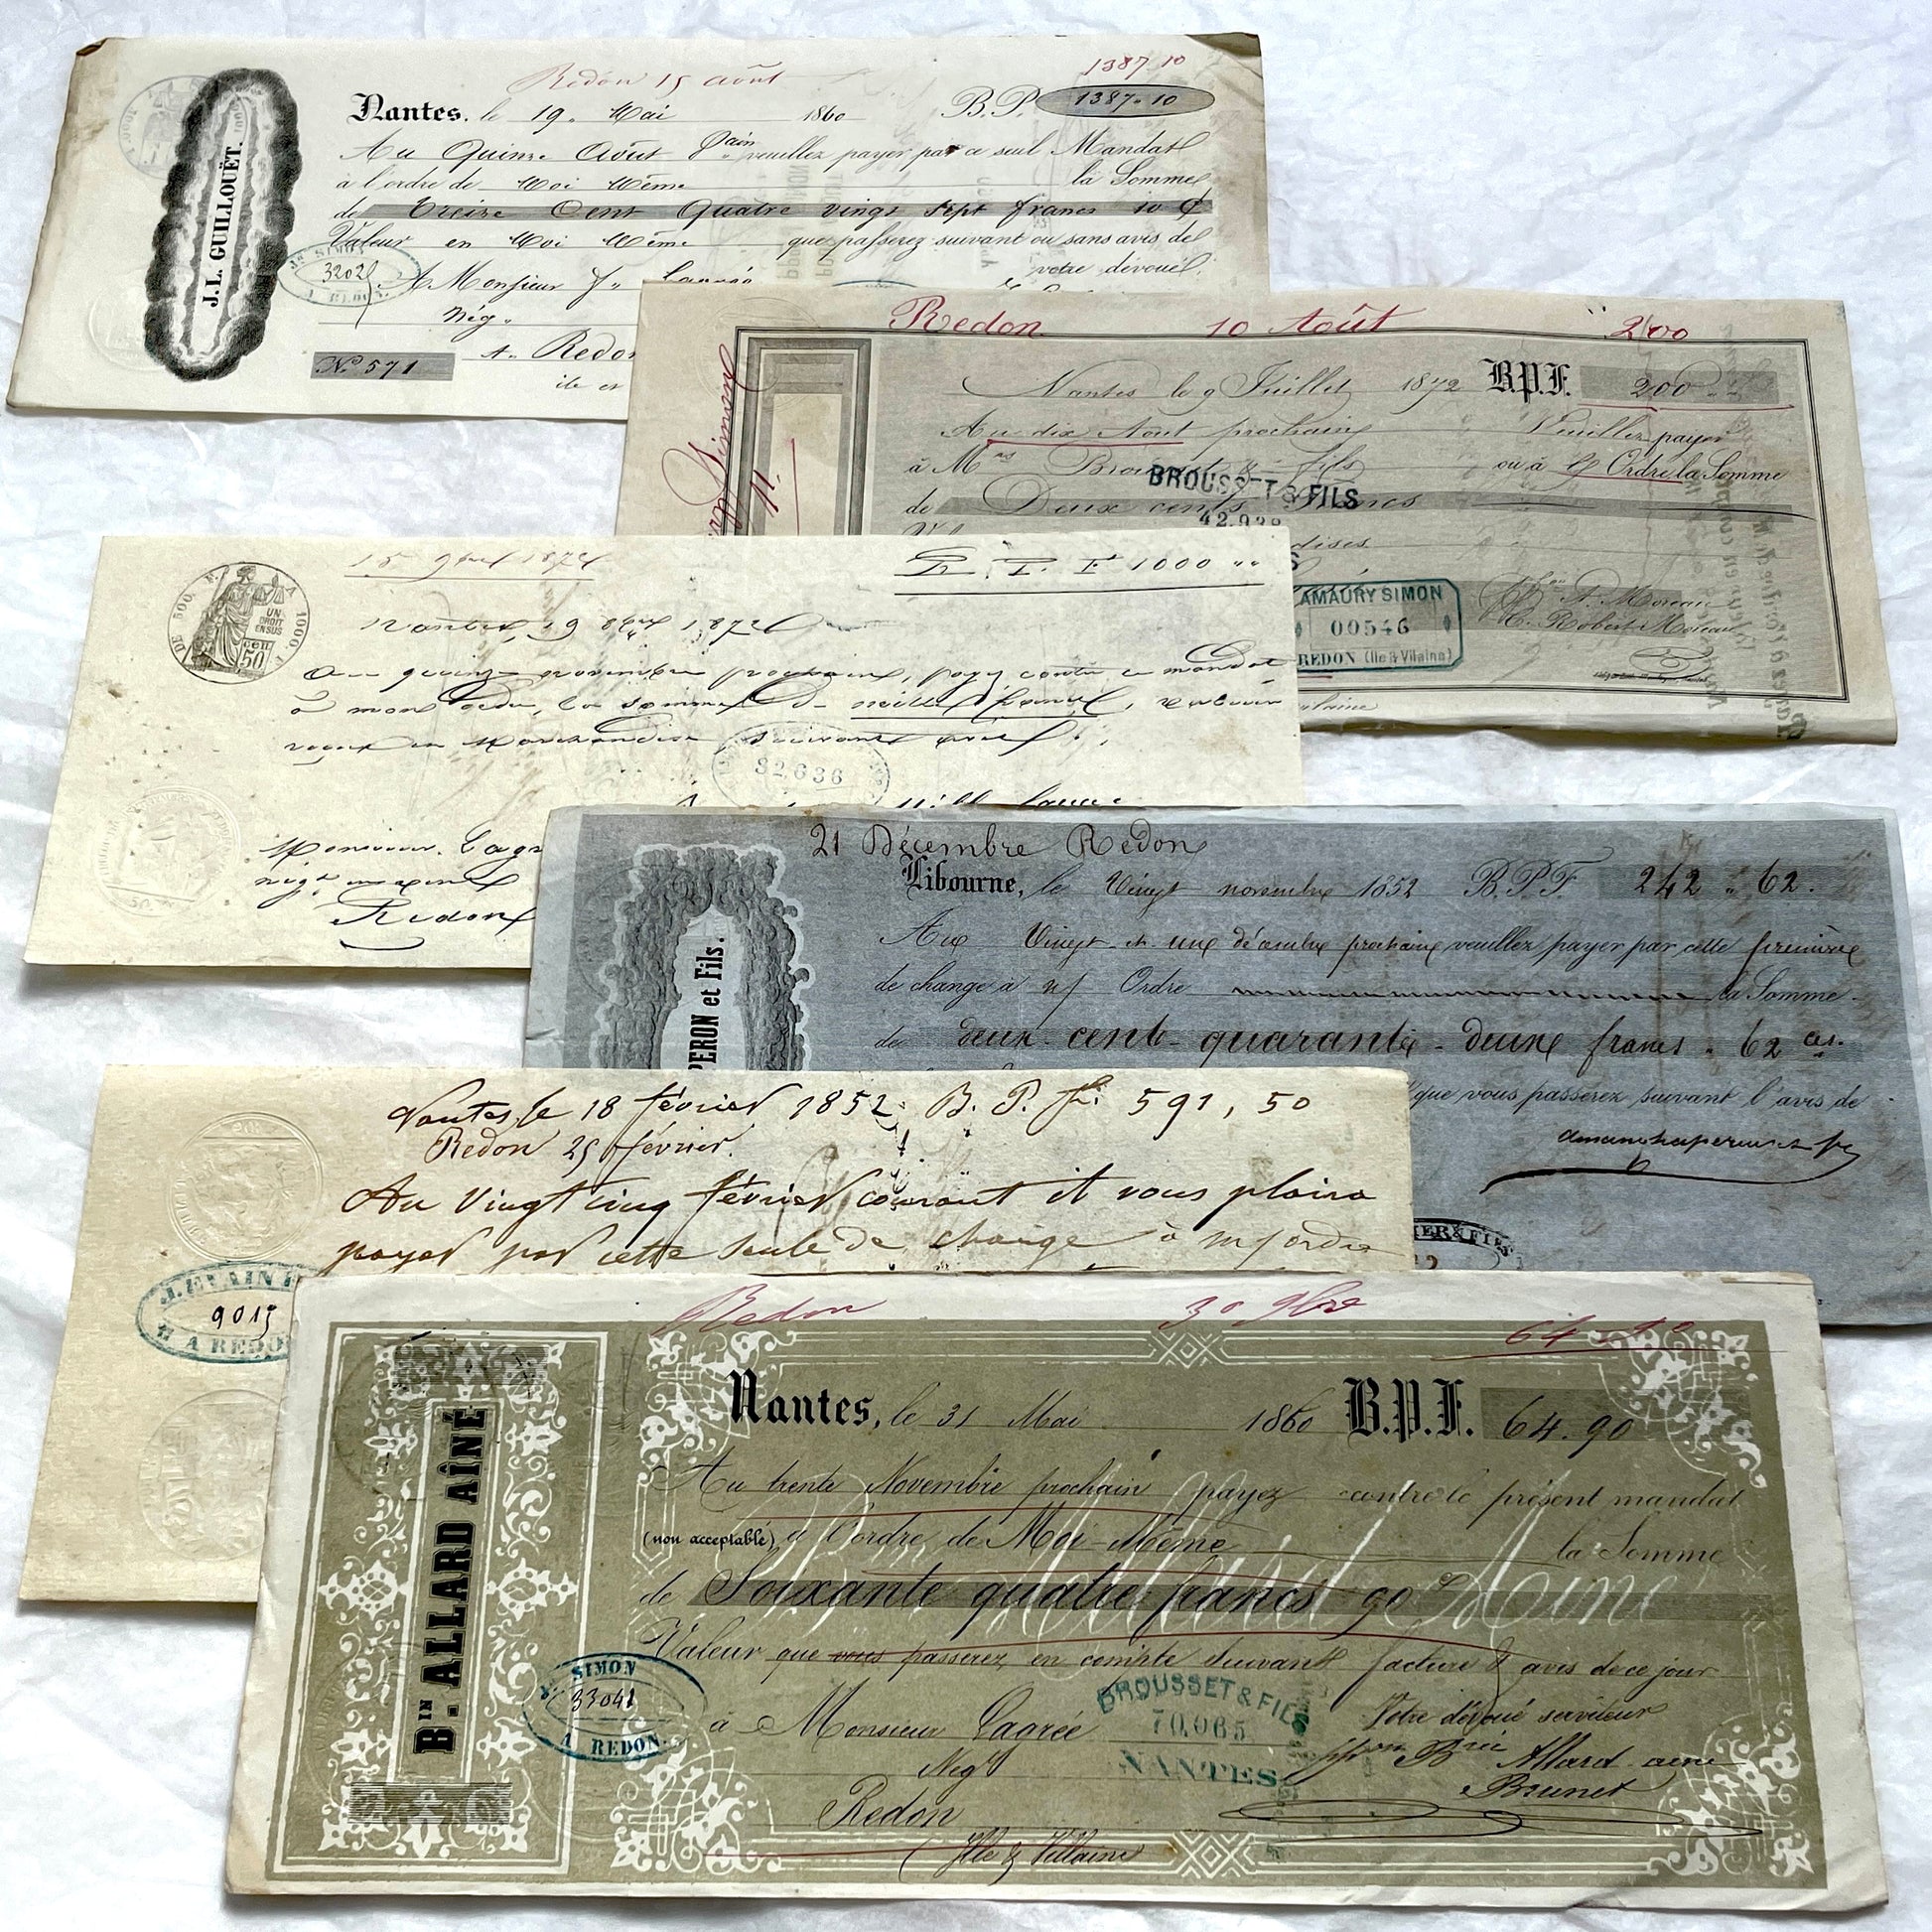 Redon 15 août
1387.10
Nantes, le 19. Mai 1860 B.P. 1387.10
Au Quinze Août Pain veuillez payer par ce seul Mandat
à l'ordre de Moi Même la Somme
de Treize Cent Quatre vingt Sept francs 10 c
Valeur en Moi Même que passerez suivant ou sans avis de
votre dévoué
J.L. GUILLOUËT.
Jh SIMON
32025
A REDON.
A Monsieur
Nég.
A. Redon
No. 571
Redon 10 Août 200
Nantes le 9 Juillet 1872 B.P.F. 200
Au dix Aout prochain Veuillez payer
à Mrs Brousset & fils ou à Ordre la Somme
BROUSSET & FILS
42.938
de Deux cents francs
dises
AMAURY SIMON
00546
REDON (Ile & Vilaine)
A. Moreau
Robert Moreau
15 9bre 1872
B. P. F 1000
DE 500 F. A 1000 F.
UN DROIT EN SUS
50 cen
Nantes, 19 8bre 1872
Au quinze novembre prochain, payez contre ce mandat
à mon ordre, la somme de mille francs, valeur
reçue en Marchandises, suivant avis.
32,636
Monsieur Lagr
négt
Redon
21 Décembre Redon
Libourne, le Vingt novembre 1852 B.P.F. 242 " 62.
Au Vingt et une décembre prochain veuillez payer par cette première
de change à n/ Ordre la Somme
de deux cent quarante deux francs 62 ces.
que vous passerez suivant l'avis de
PERON et Fils.
Nantes, le 18 février 1852. B. P. fr. 591,50
Redon 25 février.
Au vingt cinq février courant il vous plaira
payer par cette seule de change à m/ordre
J. EVAIN
9015
A REDON
Redon 30 9bre
64 90
Nantes, le 31 Mai 1860 B.P.F. 64.90
Au trente Novembre prochain payez contre le présent mandat
(non acceptable) à l'ordre de Moi-Même la Somme
de Soixante quatre francs 90 c
Bin Allard Aîné
Valeur que vous passerez en compte suivant facture & avis de ce jour
BIN. ALLARD AÎNÉ
SIMON
33041
A REDON.
à Monsieur Lagrée
BROUSSET & FILS
70,065
NANTES
Votre dévoué serviteur
Allard aîné
Brunet
Negt
Redon
Ille & Villaine